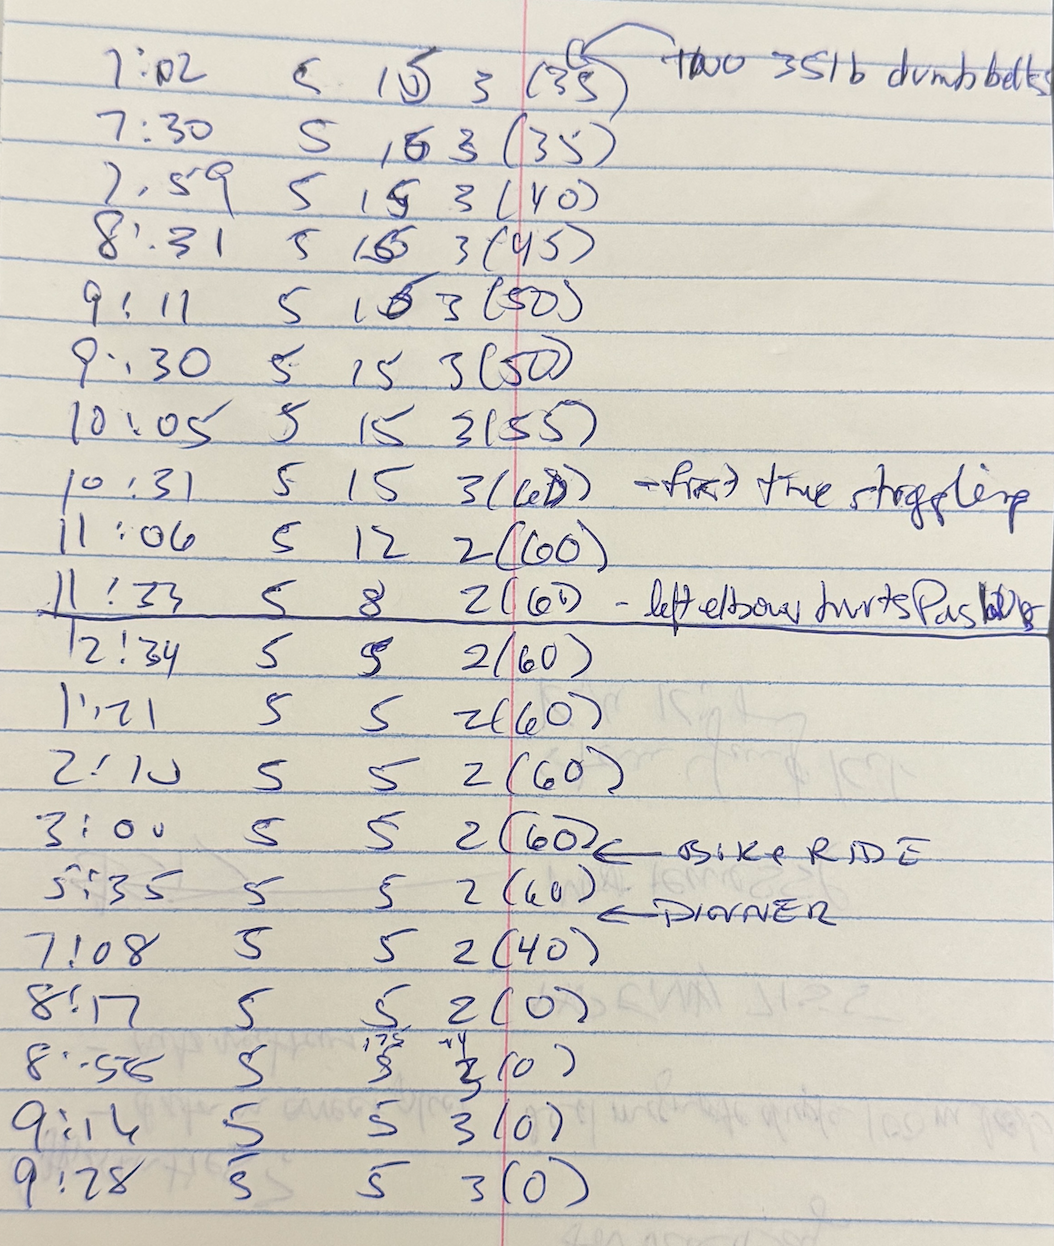 7:02 5 15 3 (35) two 35lb dumbbells
7:30 5 15 3 (35)
7:59 5 15 3 (40)
8:31 5 15 3 (45)
9:11 5 15 3 (50)
9:30 5 15 3 (50)
10:05 5 15 3 (55)
10:31 5 15 3 (60) - first time struggling
11:06 5 12 2 (60)
11:33 5 8 2 (60) - left elbow hurts
12:34 5 5 2 (60)
1:21 5 5 2 (60)
2:10 5 5 2 (60)
3:00 5 5 2 (60) ← BIKE RIDE
5:35 5 5 2 (60)
← DINNER
7:08 5 5 2 (40)
8:17 5 5 2 (0)
8:56 5 5 3 (0)
9:14 5 5 3 (0)
9:28 5 5 3 (0)